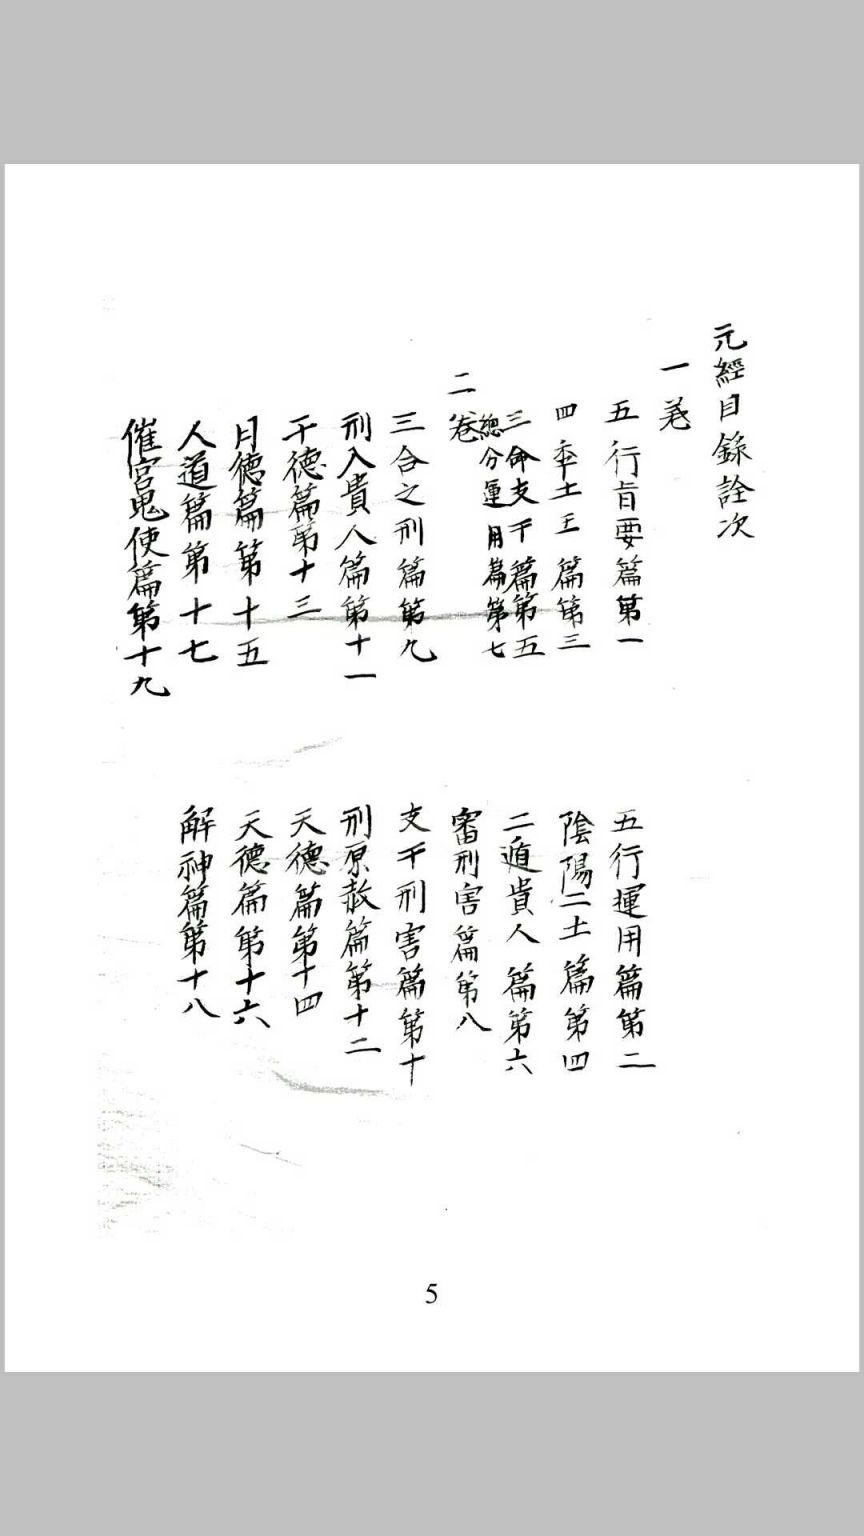 元經目錄詮次
一卷
五行旨要篇第一
五行運用篇第二
四季土王篇第三
陰陽二土篇第四
三命支干篇第五
二遁貴人篇第六
總分運用篇第七
二卷
審刑害篇第八
三合之刑篇第九
支干刑害篇第十
刑入貴人篇第十一
刑原赦篇第十二
干德篇第十三
天德篇第十四
月德篇第十五
天德篇第十六
人道篇第十七
解神篇第十八
催官鬼使篇第十九
5